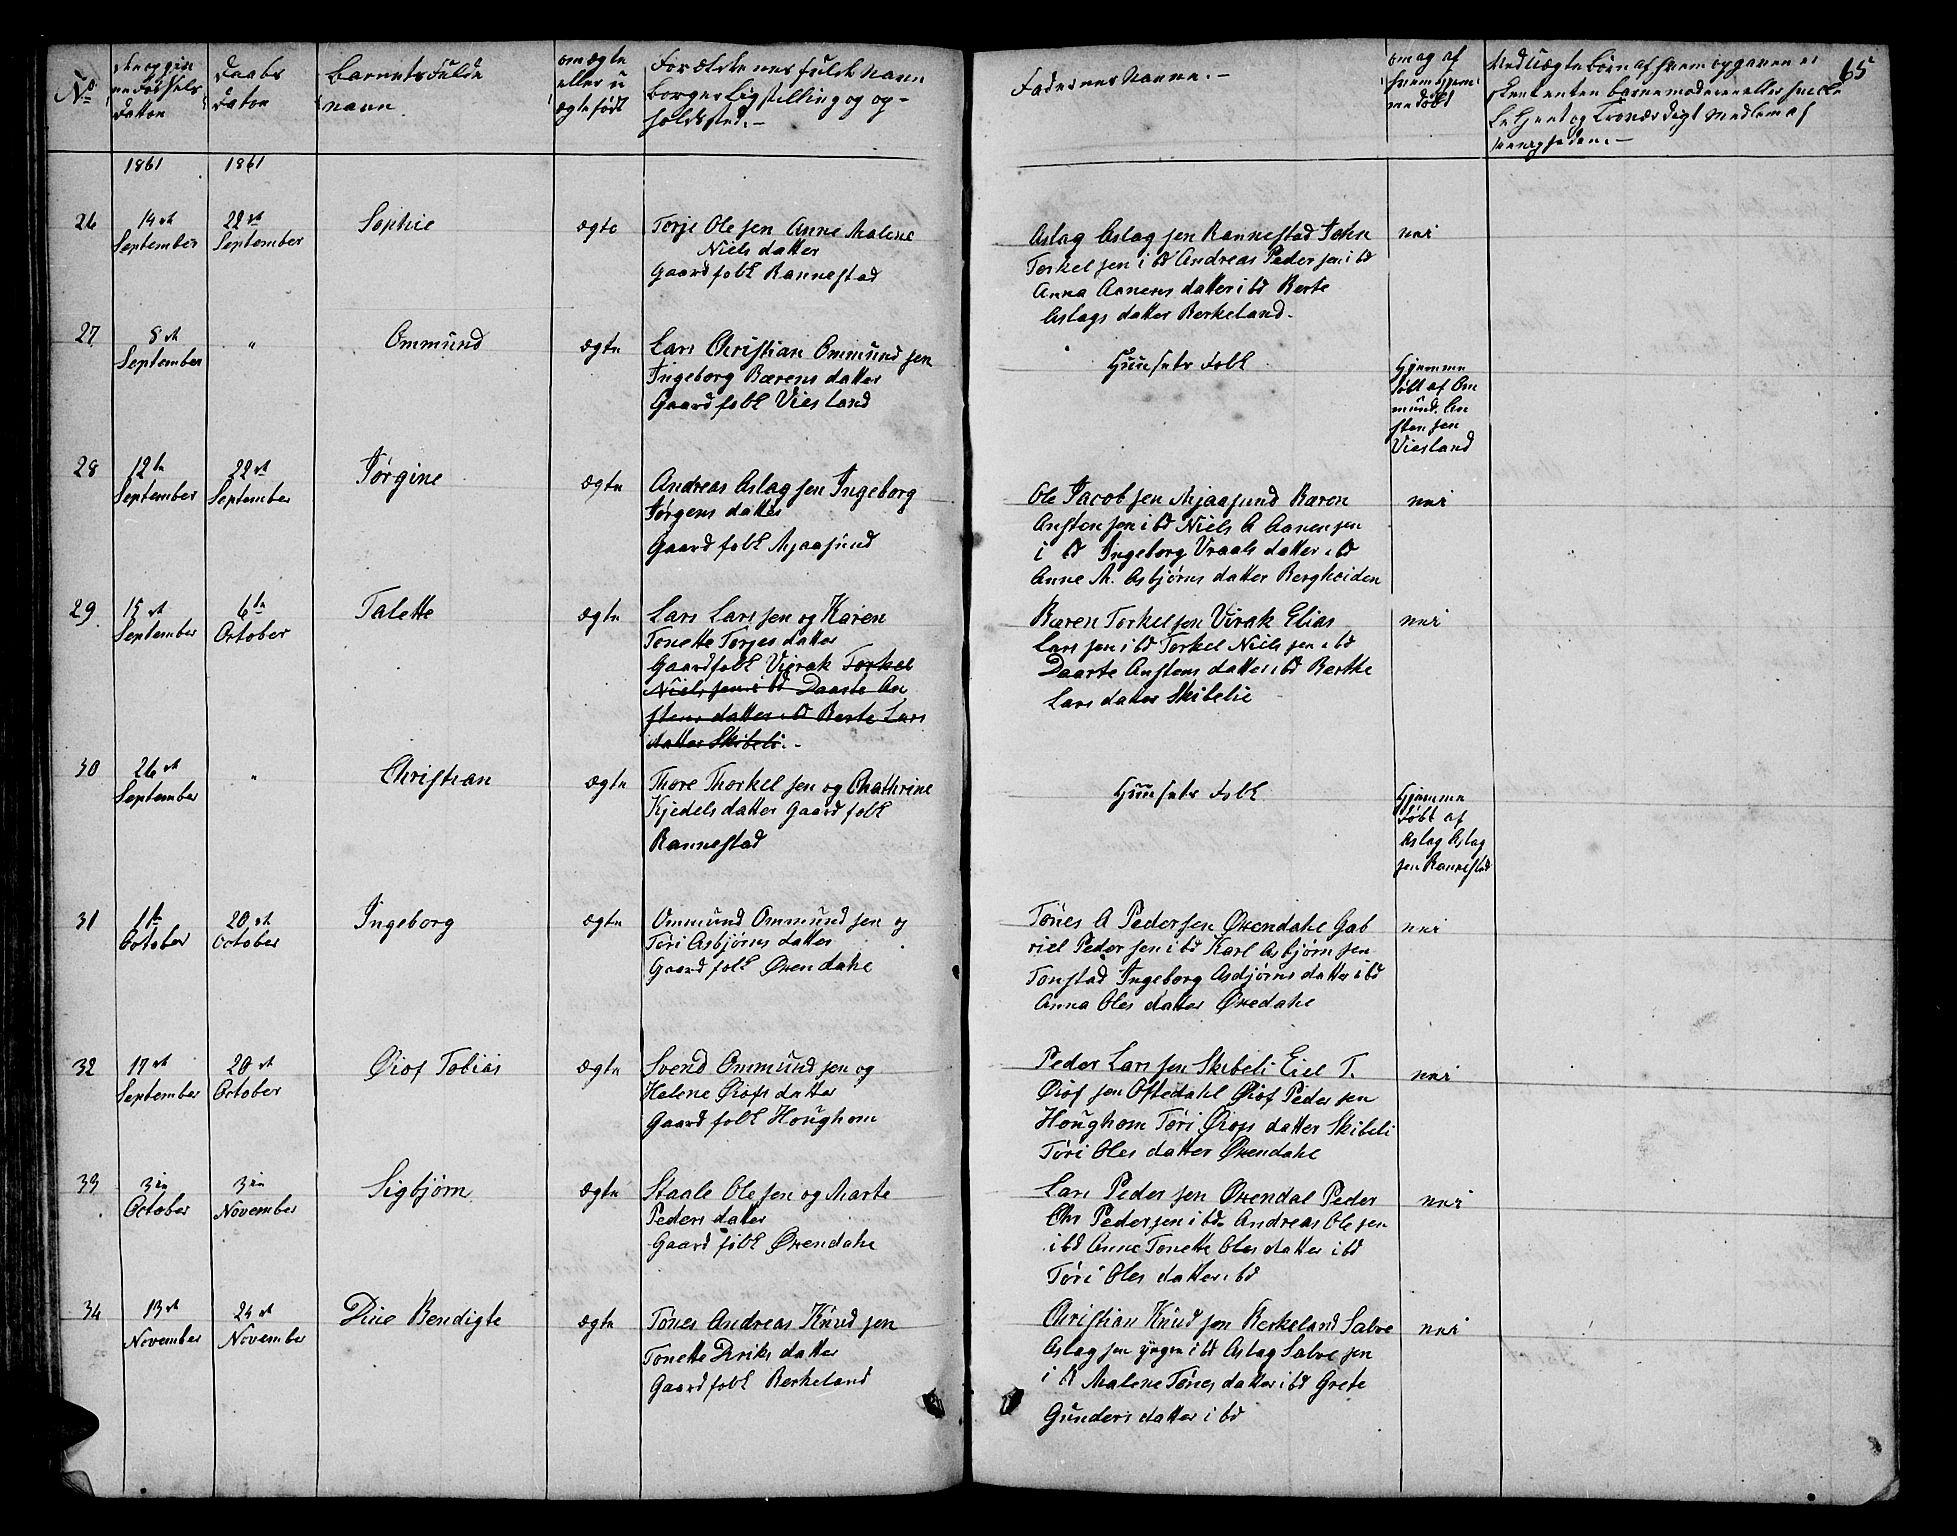 65
No
Daabs
Datoe
Barnets fulde
navn
om ægte
eller u
ægte født
Forældrenes fulde Navn
borgerlig stilling og op-
holdsted.-
Faderenes Navne.-
1861 1861
26
14de
September
22de
September
Sophie
ægte
Torje Olesen Anne Malene
Nielsdatter
Gaardfolk Rannestad
Aslag Aslagsen Rannestad John
Torkelsen i bd Andreas Pedersen i bd
Anna Aanensdatter i bd Berte
Aslagsdatter Berkeland.
nei
27
8de
September
"
Ommund
ægte
Lars Christian Ommundsen
Ingeborg Bærensdatter
Gaardfolk Viesland
Huusets Folk
Hjemme
døbt af Om
mund An
stensen
Viesland
28
12te
September
22de
September
Jørgine
ægte
Andreas Aslagsen Ingeborg
Jørgensdatter
Gaardfolk Mjaasund
Ole Jacobsen Mjaasund Bæren
Anstensen i bd Niels A Aanensen
i bd Ingeborg Vraalsdatter i bd
Anne M. Asbjørnsdatter Bergheiden
nei
29
15de
September
6te
October
Talette
ægte
Lars Larssen og Karen
Tonette Torjesdatter
Gaardfolk Virak Torkel
Nielssen i bd Daarte An
stensdatter i bd Berte Lars
datter Skibeli.-
Bæren Torkelsen Virak Elias
Larssen i bd Torkel Nielssen i bd
Daarte Anstensdatter i bd Berthe
Larsdatter Skibelie
nei
30
26de
September
"
Christian
ægte
Thore Thorkelsen og Chathrine
Kjedelsdatter Gaardfolk
Rannestad
Huusets Folk
Hjemme
døbt af
Aslag Aslag
sen Rannestad
31
1te
October
20de
October
Ingeborg
ægte
Ommund Ommundsen og
Tøri Asbjørnsdatter
Gaardfolk Øxendahl
Tønes A Pedersen Øxendahl Gab
riel Pedersen i bd Karl Asbjørnsen
Tonstad Ingeborg Asbjørnsdatter i bd
Anna Olesdatter Øxedahl
nei
32
17de
September
20de
October
Øiof Tobias
ægte
Svend Ommundsen og
Helene Øiofsdatter
Gaardfolk Houghom
Peder Larssen Skibeli Eiel T.
Øiofsen Oftedahl Øiof Pedersen
Houghom Tøri Øiofsdatter Skibeli
Tøri Olesdatter Øxendahl
nei
33
3die
October
3die
November
Sigbjørn
ægte
Staale Olesen og Marte
Pedersdatter
Gaardfolk Øxendahl
Lars Pedersen Øxendal Peder
Chr Pedersen i bd Andreas Olesen
i bd Anne Tonette Olesdatter i bd
Tøri Olesdatter i bd
nei
34
13de
November
24de
November
Dine Bendigte
ægte
Tønes Andreas Knudsen
Tonette Diriksdatter
Gaardfolk Berkeland
Christian Knudsen Berkeland Salve
Aslagsen yngre i bd Aslag Salvesen
i bd Malene Tønesdatter i bd Grete
Gundersdatter i bd
nei